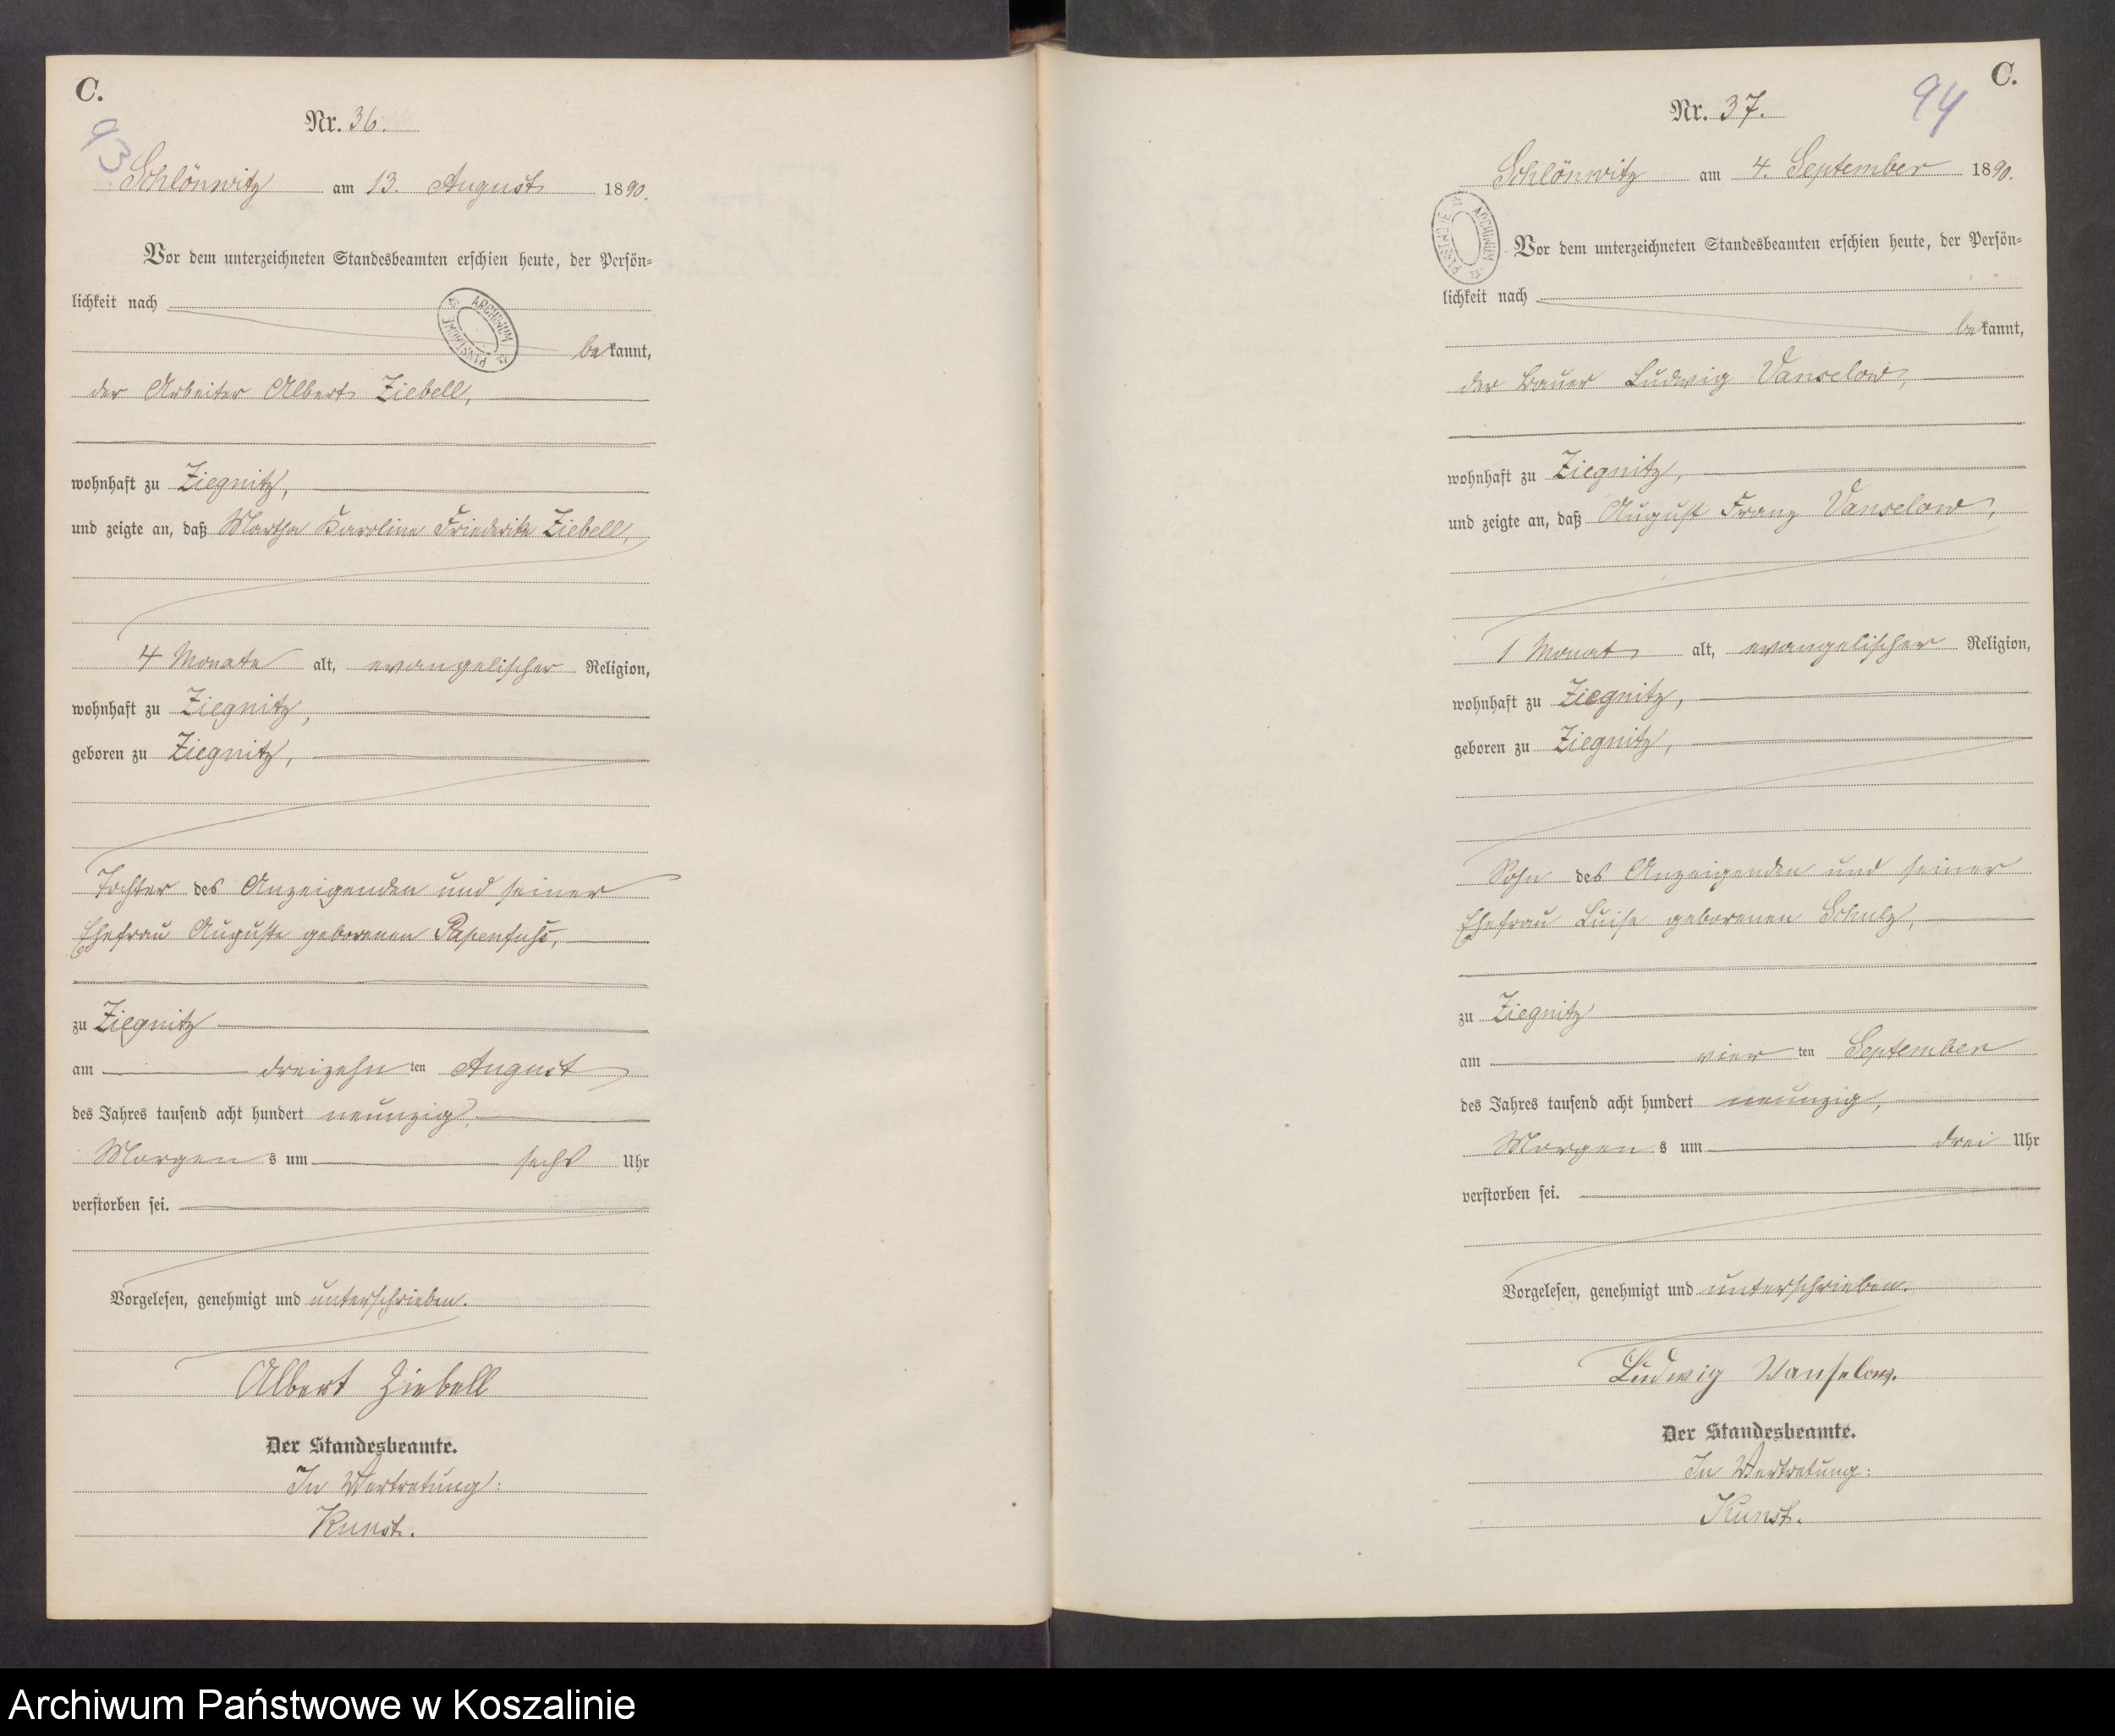 C.
93
Nr. 36.
Schlönwitz am 13. August 1890.
Vor dem unterzeichneten Standesbeamten erschien heute, der Persön-
lichkeit nach
ARCHIWUM PAŃSTWOWE
bekannt,
der Arbeiter Albert Ziebell,
wohnhaft zu Ziegnitz,
und zeigte an, daß Martha Karoline Friederike Ziebell,
4 Monate alt, evangelischer Religion,
wohnhaft zu Ziegnitz,
geboren zu Ziegnitz,
Tochter des Anzeigenden und seiner
Ehefrau Auguste geborenen Papenfuhs,
zu Ziegnitz
am dreizehn ten August
des Jahres tausend acht hundert neunzig,
Morgens um sechs Uhr
verstorben sei.
Vorgelesen, genehmigt und unterschrieben.
Albert Ziebell
Der Standesbeamte.
In Vertretung:
Kunst.
C.
94
Nr. 37.
Schlönwitz am 4. September 1890.
ARCHIWUM PAŃSTWOWE
Vor dem unterzeichneten Standesbeamten erschien heute, der Persön-
lichkeit nach
bekannt,
der Bauer Ludwig Vanselow,
wohnhaft zu Ziegnitz,
und zeigte an, daß August Franz Vanselow,
1 Monat alt, evangelischer Religion,
wohnhaft zu Ziegnitz,
geboren zu Ziegnitz,
Sohn des Anzeigenden und seiner
Ehefrau Luise geborenen Schulz,
zu Ziegnitz
am vier ten September
des Jahres tausend acht hundert neunzig,
Morgens um drei Uhr
verstorben sei.
Vorgelesen, genehmigt und unterschrieben.
Ludwig Vanselow.
Der Standesbeamte.
In Vertretung:
Kunst.
Archiwum Państwowe w Koszalinie